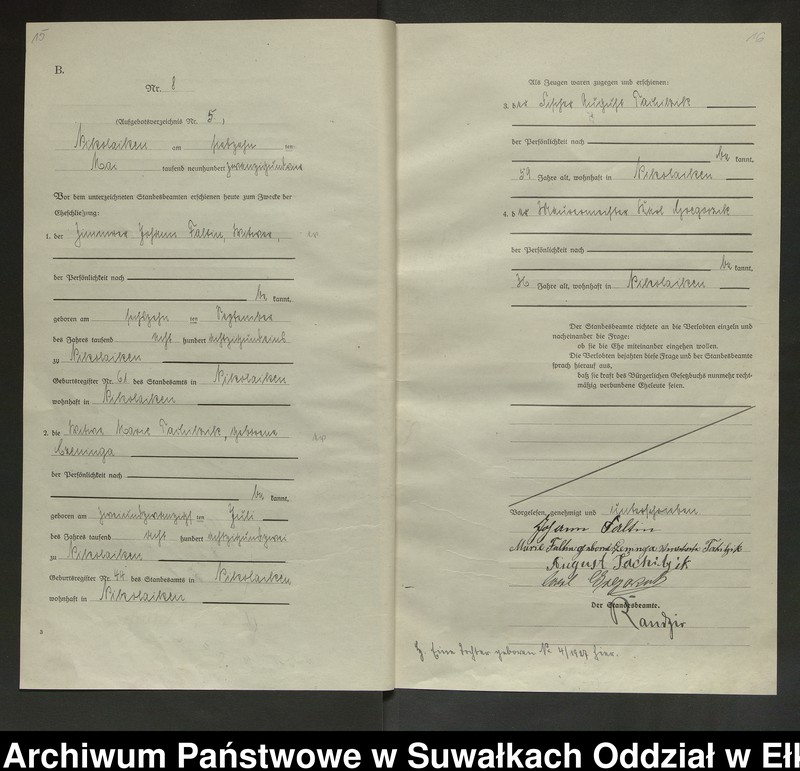 15
B.
Nr. 8
(Aufgebotsverzeichnis Nr. 5)
Nikolaiken am siebzehnten
Mai tausend neunhundert zwanzigundeins
Vor dem unterzeichneten Standesbeamten erschienen heute zum Zwecke der
Eheschließung:
1. der Zimmerer Johann Faltin, Witwer,
der Persönlichkeit nach
be kannt,
geboren am sechszehnten September
des Jahres tausend acht hundert achtzigundeins
zu Nikolaiken
Geburtsregister Nr. 61 des Standesamts in Nikolaiken
wohnhaft in Nikolaiken
2. die Witwe Marie Tachilzik, geborene
Czeninga
der Persönlichkeit nach
be kannt,
geboren am zweiundzwanzigsten Juli
des Jahres tausend acht hundert achtzigundzwei
zu Nikolaiken
Geburtsregister Nr. 44 des Standesamts in Nikolaiken,
wohnhaft in Nikolaiken
16
Als Zeugen waren zugegen und erschienen:
3. der Fischer August Tachilzik
der Persönlichkeit nach
be kannt,
59 Jahre alt, wohnhaft in Nikolaiken
4. der Maurermeister Karl Gregorzik
der Persönlichkeit nach
be kannt,
36 Jahre alt, wohnhaft in Nikolaiken
Der Standesbeamte richtete an die Verlobten einzeln und
nacheinander die Frage:
ob sie die Ehe miteinander eingehen wollen.
Die Verlobten bejahten diese Frage und der Standesbeamte
sprach hierauf aus,
daß sie kraft des Bürgerlichen Gesetzbuchs nunmehr recht-
mäßig verbundene Eheleute seien.
Vorgelesen, genehmigt und unterschrieben
Johann Faltin
Marie Faltin geborene Czeninga verwitwete Tachilzik
August Tachilzik
Karl Gregorzik
Der Standesbeamte.
Randzio
Eine Tochter geboren N. 4/1927 hier.
Archiwum Państwowe w Suwałkach Oddział w Ełk